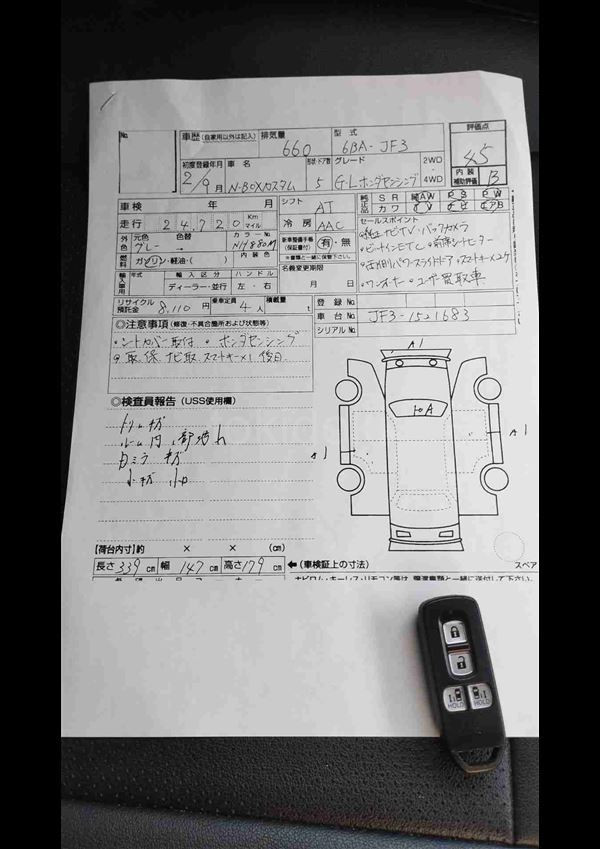 No.
車歴 (自家用以外は記入) 排気量 660 型式 6BA-JF3 評価点 4.5
初度登録年月 2/9月 車名 N-BOXカスタム 形状・ドア数 5 グレード G・Lホンダセンシング 2WD・4WD 内装補助評価 B
車検 年 月 シフト AT 純正品 SR AW PS PW カワ TV
走行 24,720 Km マイル 冷房 AAC セールスポイント
外色 元色 グレー 色替 → カラーNo. NH880M 内装色 新車整備手帳(保証書付) 有・無 ・純正ナビTV・バックカメラ
燃料 ガソリン・軽油・( ) ※書類と一緒に保管下さい。 ・ビルトインETC・前席シートヒーター
輸入車用 年式 輸入区分 ディーラー・並行 ハンドル 左・右 名義変更期限 月 日 ・両側パワースライドドア・スマートキー×2ケ
・ワンオーナー・ユーザー買取車
リサイクル預託金 8,110円 乗車定員 4人 積載量 t 登録No.
◎注意事項(修復・不具合箇所および状態等) 車台No. JF3-1521683
シリアルNo.
・シートカバー取付 ・ホンダセンシング
◎取、保、ナビ取、スマートキー×1 後日
◎検査員報告 (USS使用欄)
トリムキズ
ルーム内
カミラキズ
小キズ 小凹
A1
A1
A1
【荷台内寸】約 × × (cm)
長さ 339 cm 幅 147 cm 高さ 179 cm ←(車検証上の寸法) スペア
ナビロム・キーレス・リモコン等は、譲渡書類と一緒に送付して下さい。
HOLD HOLD